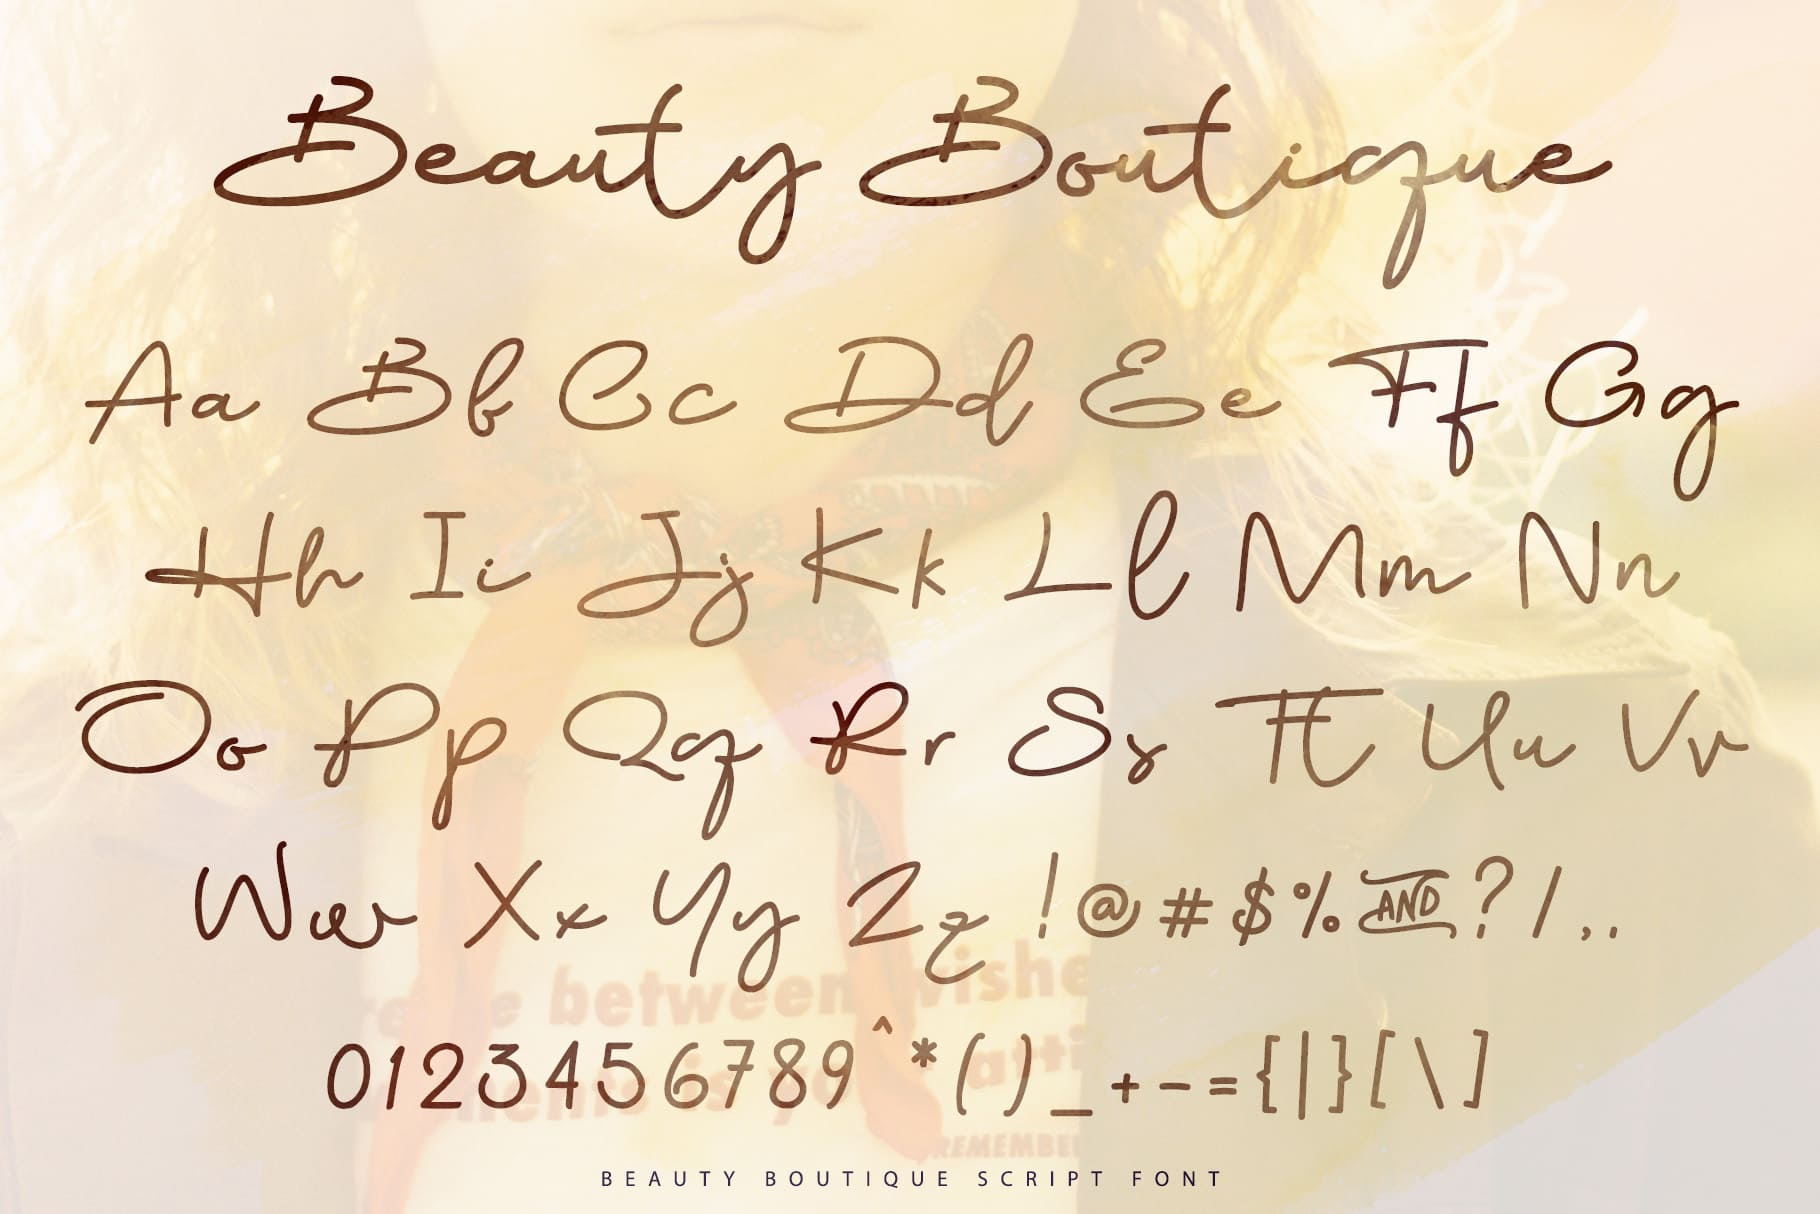 Beauty Boutique
Aa Bb Cc Dd Ee Ff Gg
Hh Ii Jj Kk Ll Mm Nn
Oo Pp Qq Rr Ss Tt Uu Vv
Ww Xx Yy Zz ! @ # $ % AND ? / , . .
between wishe
0 1 2 3 4 5 6 7 8 9 ^ * ( ) _ + - = { | } [ \ ]
is
REMEMBER
BEAUTY BOUTIQUE SCRIPT FONT